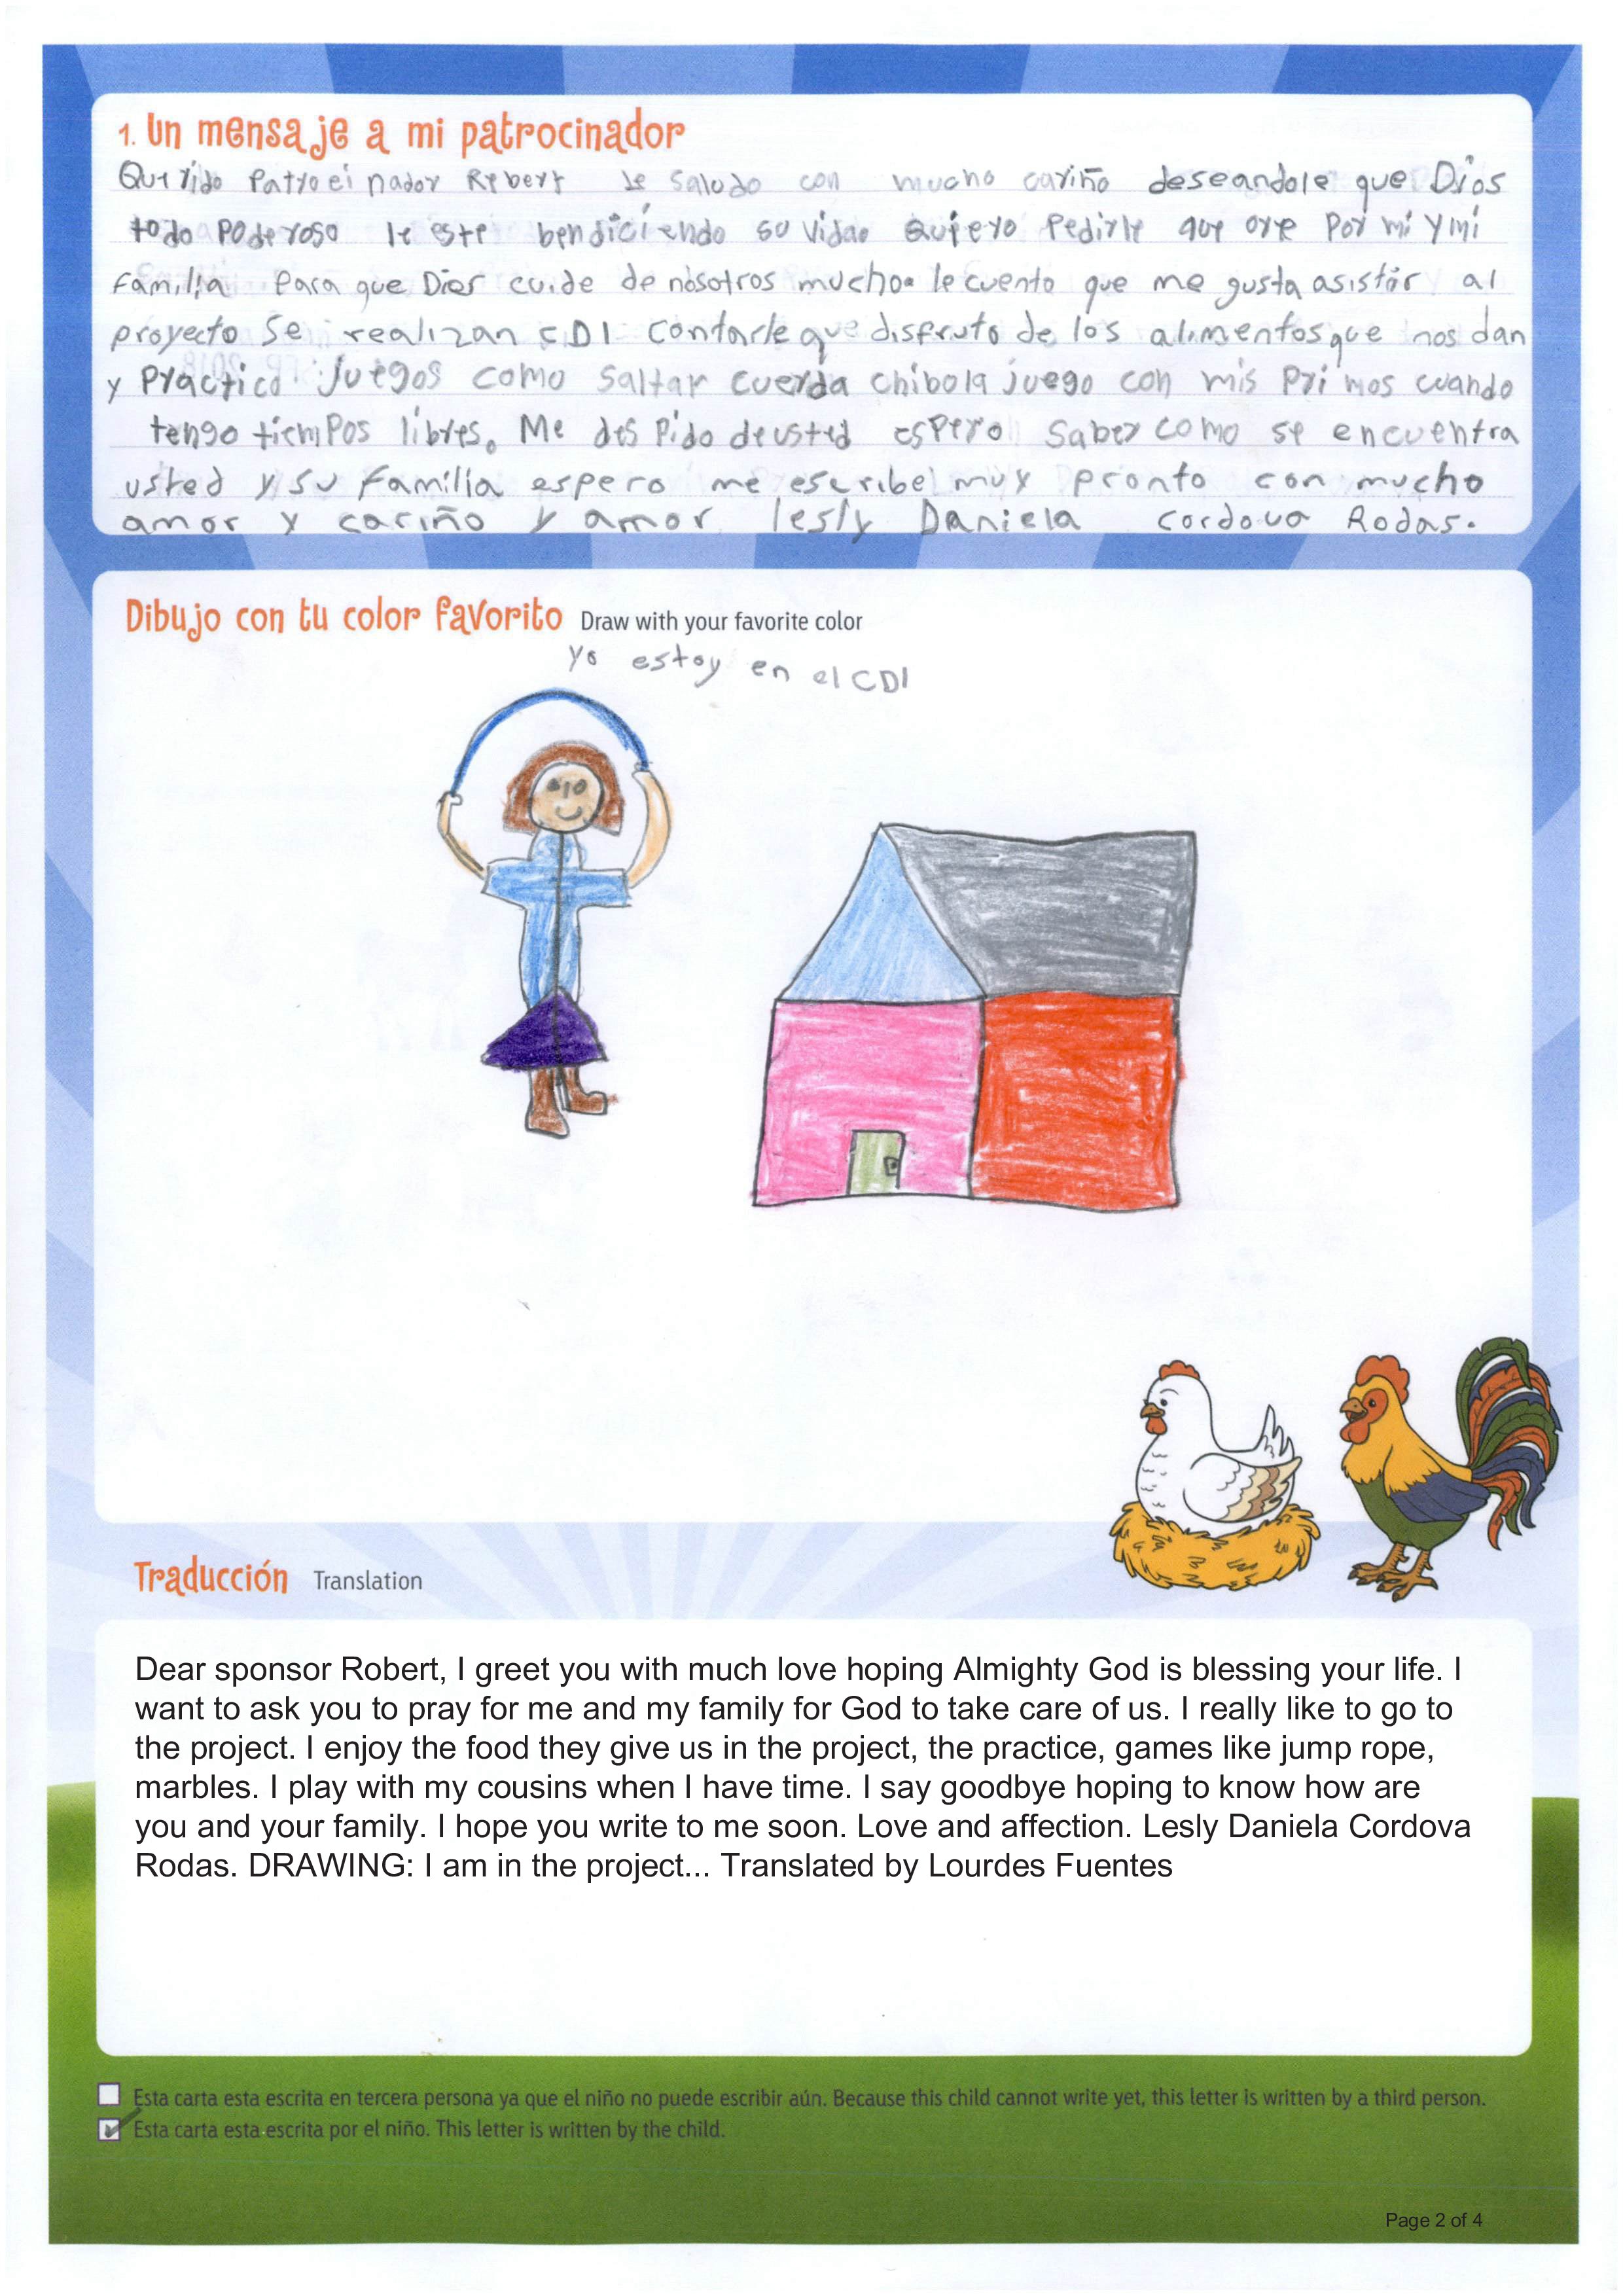 1. Un mensaje a mi patrocinador
Querido Patrocinador Robert le Saludo con mucho cariño deseandole que Dios
todo Poderoso le este bendiciendo su vida. Quiero Pedirle que ore Por mi y mi
familia Para que Dios cuide de nosotros mucho. le cuento que me gusta asistir al
proyecto Se realizan CDI Contarle que disfruto de los alimentos que nos dan
y Practico juegos como saltar cuerda chibola juego con mis Primos cuando
tengo tiemPos libres. Me desPido de usted espero Saber como se encuentra
usted y su familia espero me escribe muy pronto con mucho
amor y cariño y amor lesly Daniela cordova Rodas.
Dibujo con tu color favorito Draw with your favorite color
yo estoy en el CDI
Traducción Translation
Dear sponsor Robert, I greet you with much love hoping Almighty God is blessing your life. I
want to ask you to pray for me and my family for God to take care of us. I really like to go to
the project. I enjoy the food they give us in the project, the practice, games like jump rope,
marbles. I play with my cousins when I have time. I say goodbye hoping to know how are
you and your family. I hope you write to me soon. Love and affection. Lesly Daniela Cordova
Rodas. DRAWING: I am in the project... Translated by Lourdes Fuentes
Esta carta esta escrita en tercera persona ya que el niño no puede escribir aún. Because this child cannot write yet, this letter is written by a third person.
Esta carta esta escrita por el niño. This letter is written by the child.
Page 2 of 4